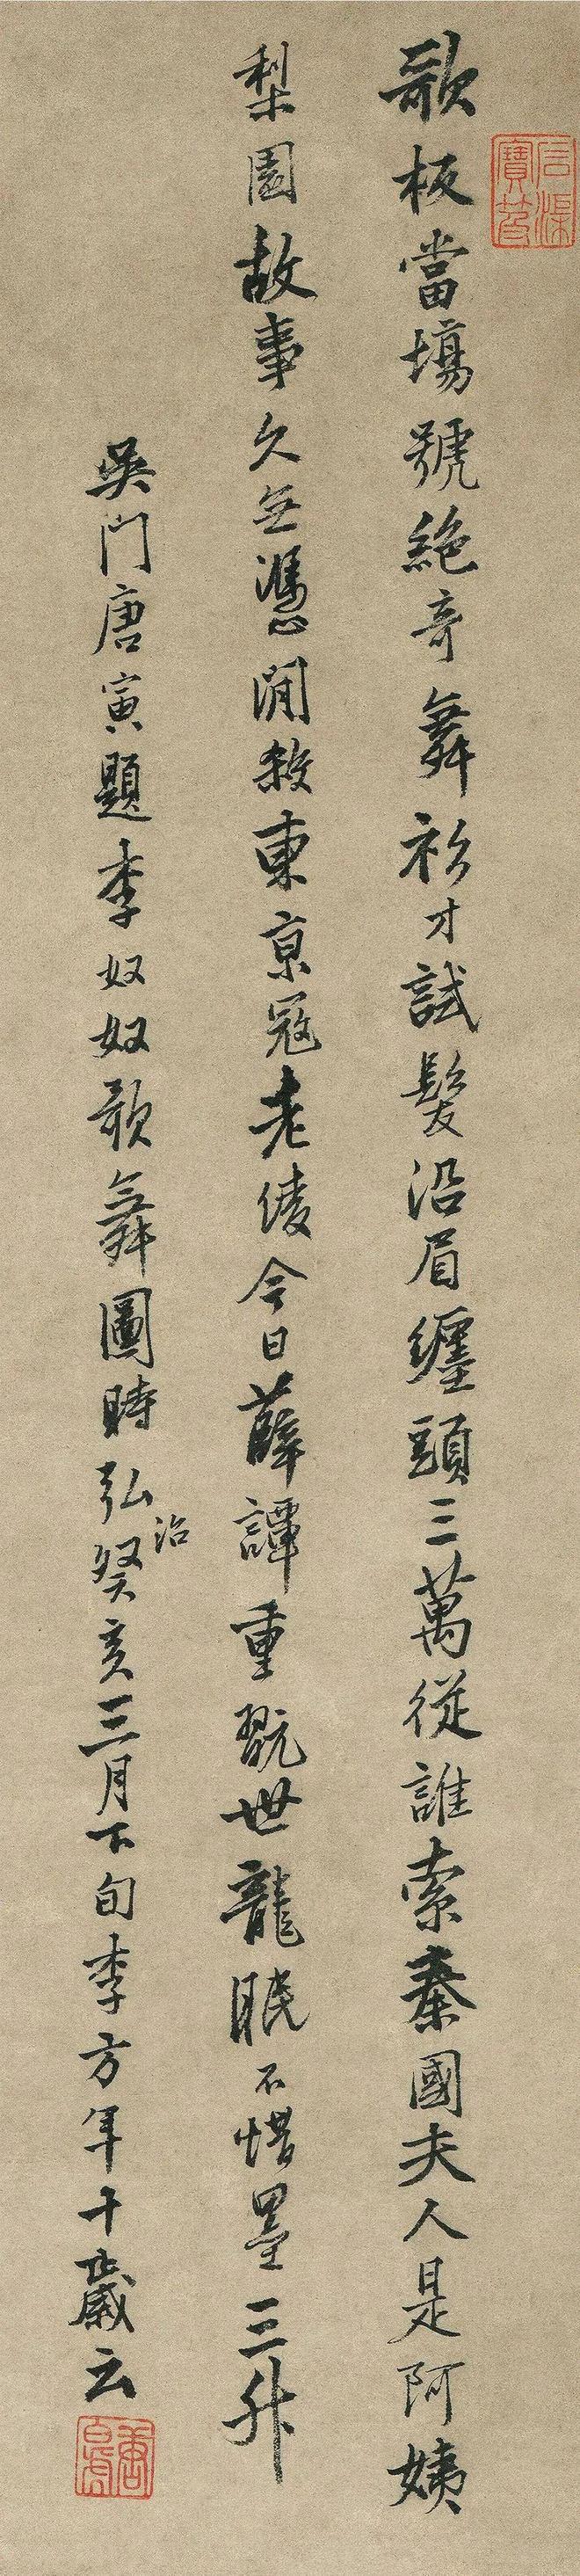 歌板當場號絕奇舞衫才試髮沿眉纏頭三萬從誰索秦國夫人是阿姨
梨園故事久無憑閒殺東京冠老倰今日薛譚重翫世龍眠不惜墨三升
吳門唐寅題李奴奴歌舞圖時弘治癸亥三月下旬李方年十歲云